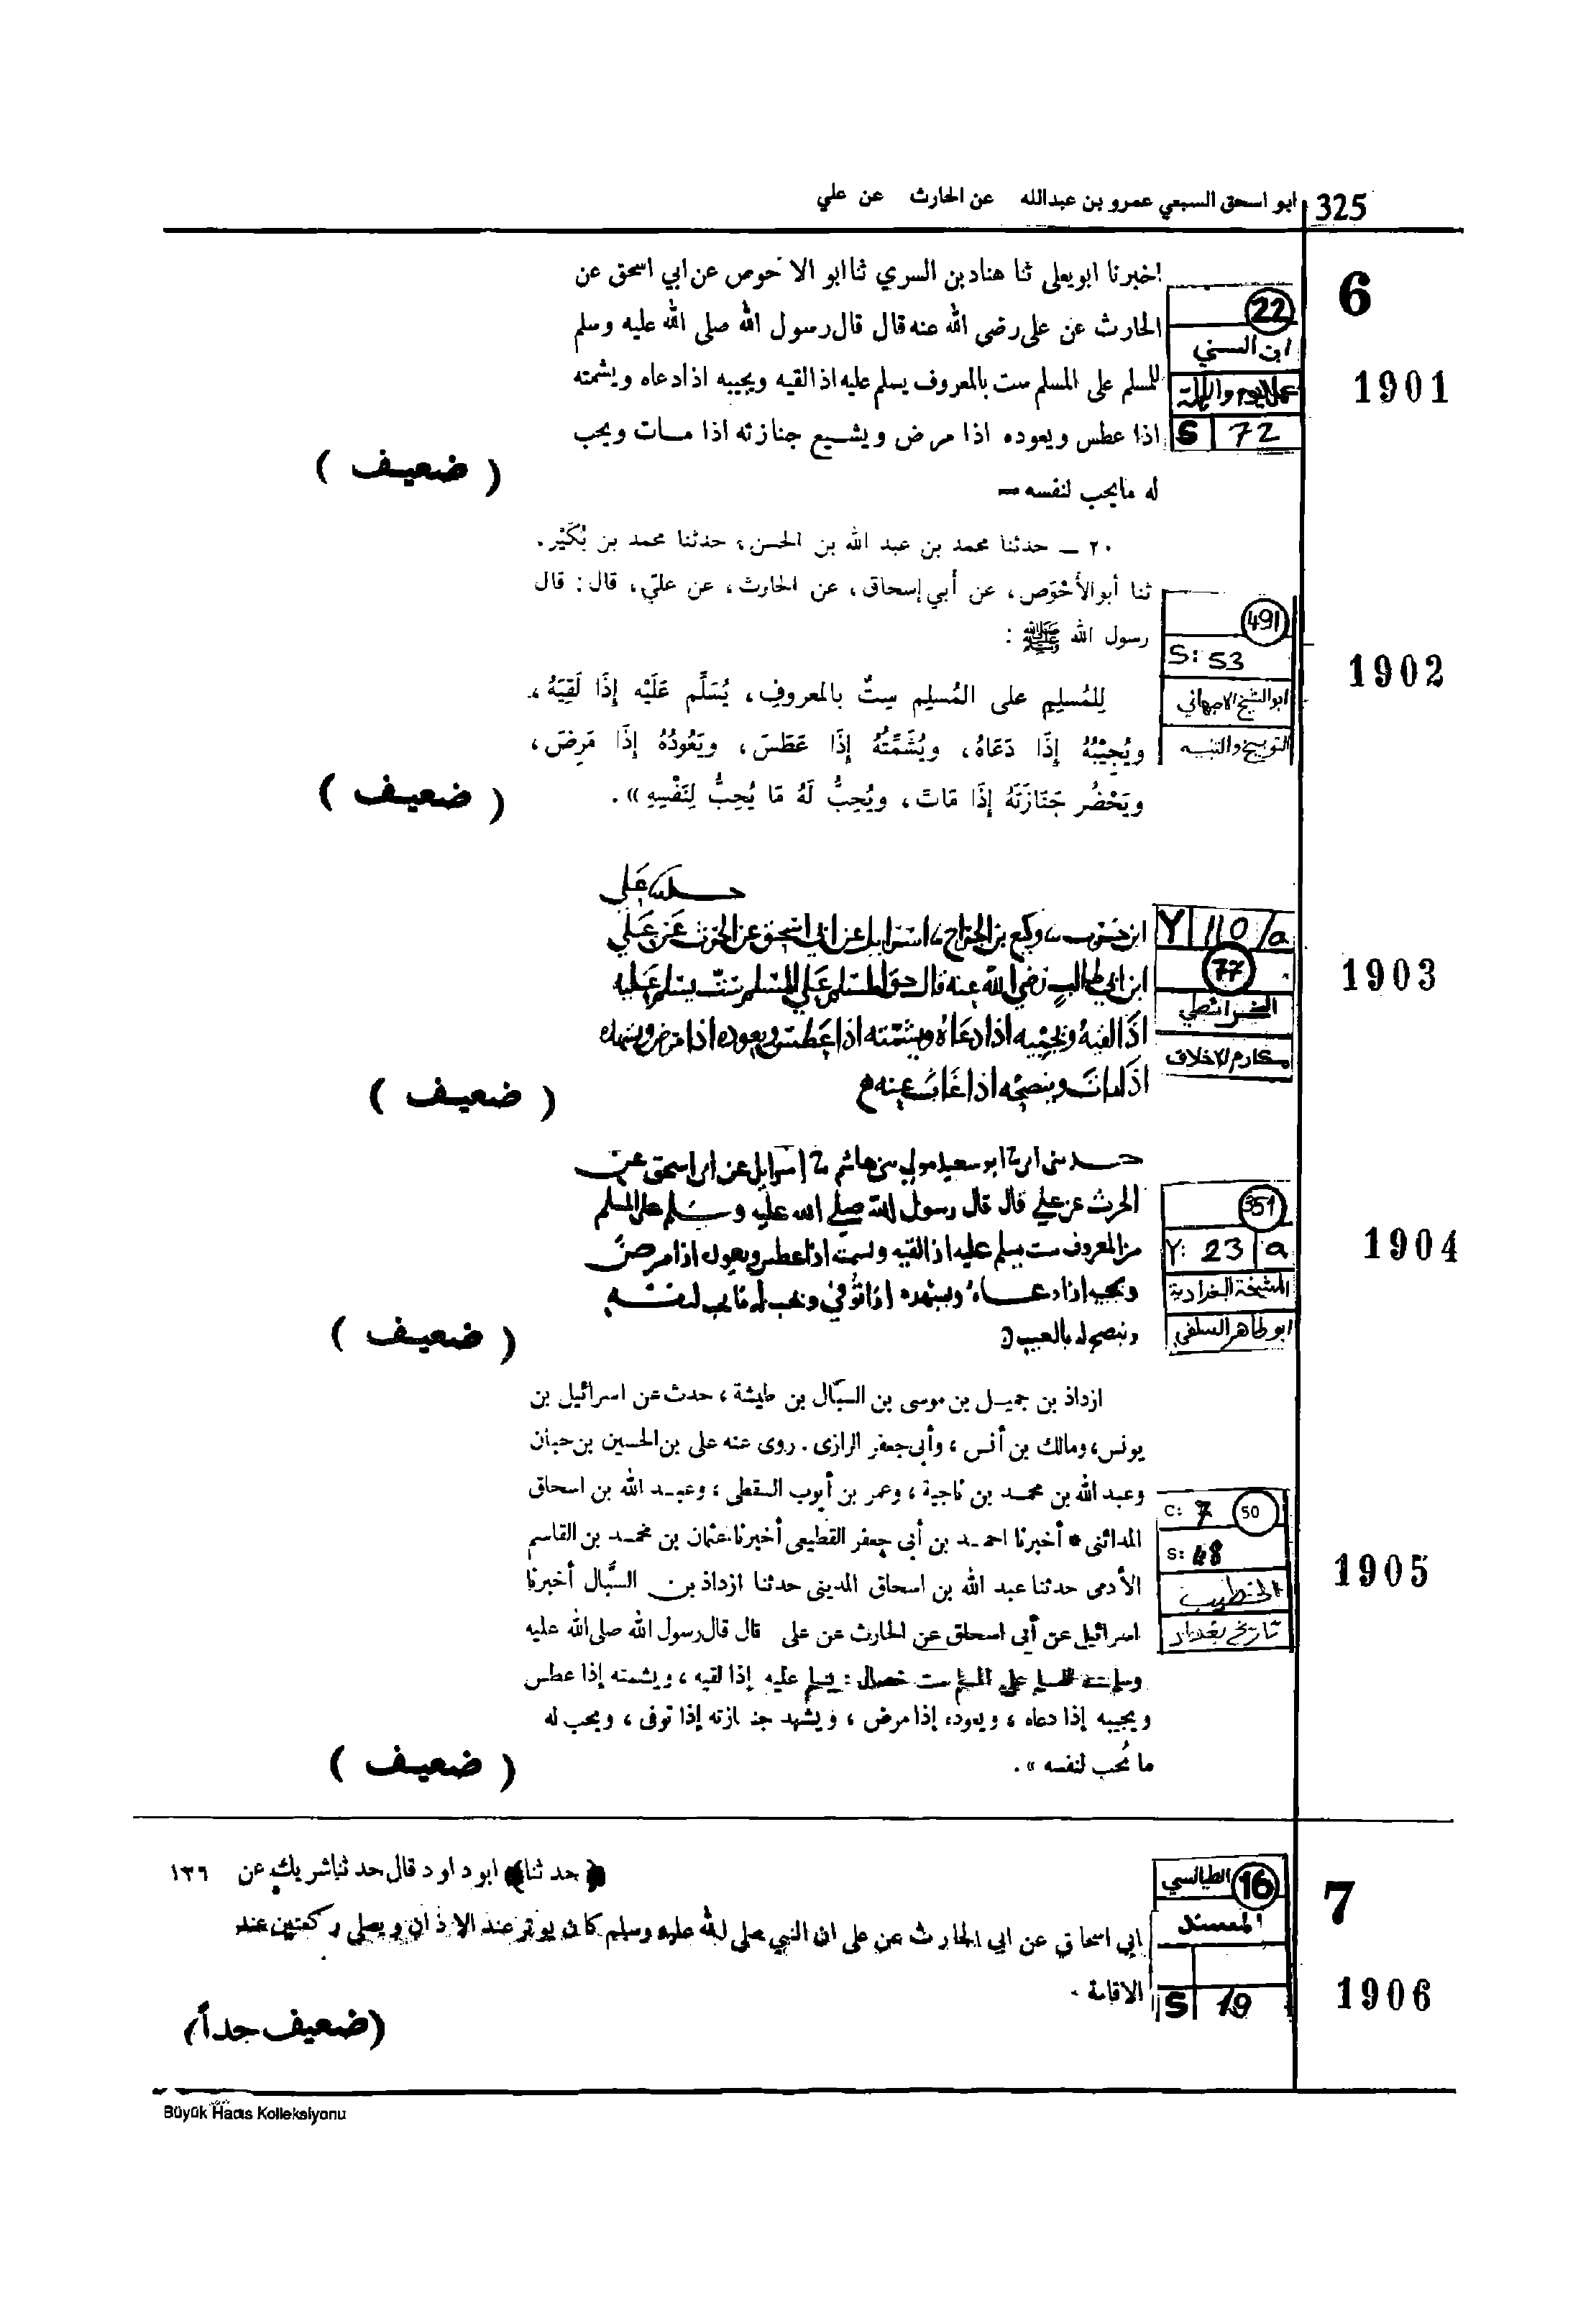 325 ابو اسحق السبعي عمرو بن عبدالله عن الحارث عن علي
6
1901
22
ابن السني
عمل اليوم والليلة
S 72
اخبرنا ابويعلى ثنا هناد بن السري ثنا ابو الاحوص عن ابي اسحق عن
الحارث عن على رضى الله عنه قال قال رسول الله صلى الله عليه وسلم
للمسلم على المسلم ست بالمعروف يسلم عليه اذا لقيه ويجيبه اذا دعاه ويشمته
اذا عطس ويعوده اذا مرض ويشيع جنازته اذا مات ويحب
له مايحب لنفسه –
( ضعيف )
1902
491
S: 53
ابوالشيخ الاصبهاني
التوبيخ والتنبيه
٢٠ – حدثنا محمد بن عبد الله بن الحسن، حدثنا محمد بن بُكَيْر.
ثنا أبو الأَحْوَص، عن أَبي إسحاق، عن الحارث، عن عليّ، قال: قال
رسول الله ﷺ :
لِلمُسلِمِ على المُسلِمِ سِتٌ بالمعروفِ، يُسَلِّم عَلَيْه إِذَا لَقِيَهُ،
ويُجِيْبُهُ إِذَا دَعَاهُ، ويُشَمِّتُهُ إِذَا عَطَسَ، ويَعُودُهُ إِذَا مَرِضَ،
ويَحْضُر جَنَازَتَهُ إِذَا مَاتَ، ويُحِبُّ لَهُ مَا يُحِبُّ لِنَفْسِهِ ».
( ضعيف )
1903
Y 110/a
77
الخرائطي
مكارم الاخلاق
علي
ابن حرب وكيع بن الجراح اسرائيل عن ابي اسحق عن الحرث عن علي
ابن ابي طالب رضي الله عنه قال حق المسلم علي المسلم ست يسلم عليه
اذا لقيه ويجيبه اذا دعاه ويشمته اذا عطس ويعوده اذا مرض ويشهده
اذا مات وينصحه اذا غاب عنه
( ضعيف )
1904
351
Y: 23 a
المشيخة البغدادية
ابو طاهر السلفي
ابو سعيد مولي بني هاشم اسرايل عن ابي اسحق عن
الحرث عن علي قال قال رسول الله صلي الله عليه وسلم علي المسلم
من المعروف ست يسلم عليه اذا لقيه ويشمته اذا عطس ويعوده اذا مرض
ويجيبه اذا دعاه ويشهده اذا توفي ويحب له ما يحب لنفسه
وينصح له بالغيب
( ضعيف )
1905
C: 7 50
S: 48
الخطيب
تاريخ بغداد
ازداذ بن جميل بن موسى بن السبّال بن طيشة، حدث عن اسرائيل بن
يونس، ومالك بن أنس، وأبى جعفر الرازى. روى عنه على بن الحسين بن حبان
وعبد الله بن محمد بن ناجية، وعمر بن أيوب السقطى، وعبد الله بن اسحاق
المدائنى * أخبرنا احمد بن أبى جعفر القطيعى أخبرنا عثمان بن محمد بن القاسم
الأدمى حدثنا عبد الله بن اسحاق المدينى حدثنا ازداذ بن السبَّال أخبرنا
اسرائيل عن أبى اسحاق عن الحارث عن على قال قال رسول الله صلى الله عليه
وسلم: للمسلم على المسلم ست خصال: يسلم عليه إذا لقيه، ويشمته إذا عطس
ويجيبه إذا دعاه، ويعوده إذا مرض، ويشهد جنازته إذا توفى، ويحب له
ما يُحب لنفسه ».
( ضعيف )
7
1906
16
الطيالسي
المسند
S 19
﴿ حد ثنا﴾ ابو داود قال حد ثنا شريك عن ١٣٦
ابى اسحاق عن ابى الحارث عن على ان النبي صلى لله عليه وسلم كان يوتر عند الاذان ويصلى ركعتين عند
الاقامة .
(ضعيف جداً)
Büyük Hadis Kolleksiyonu